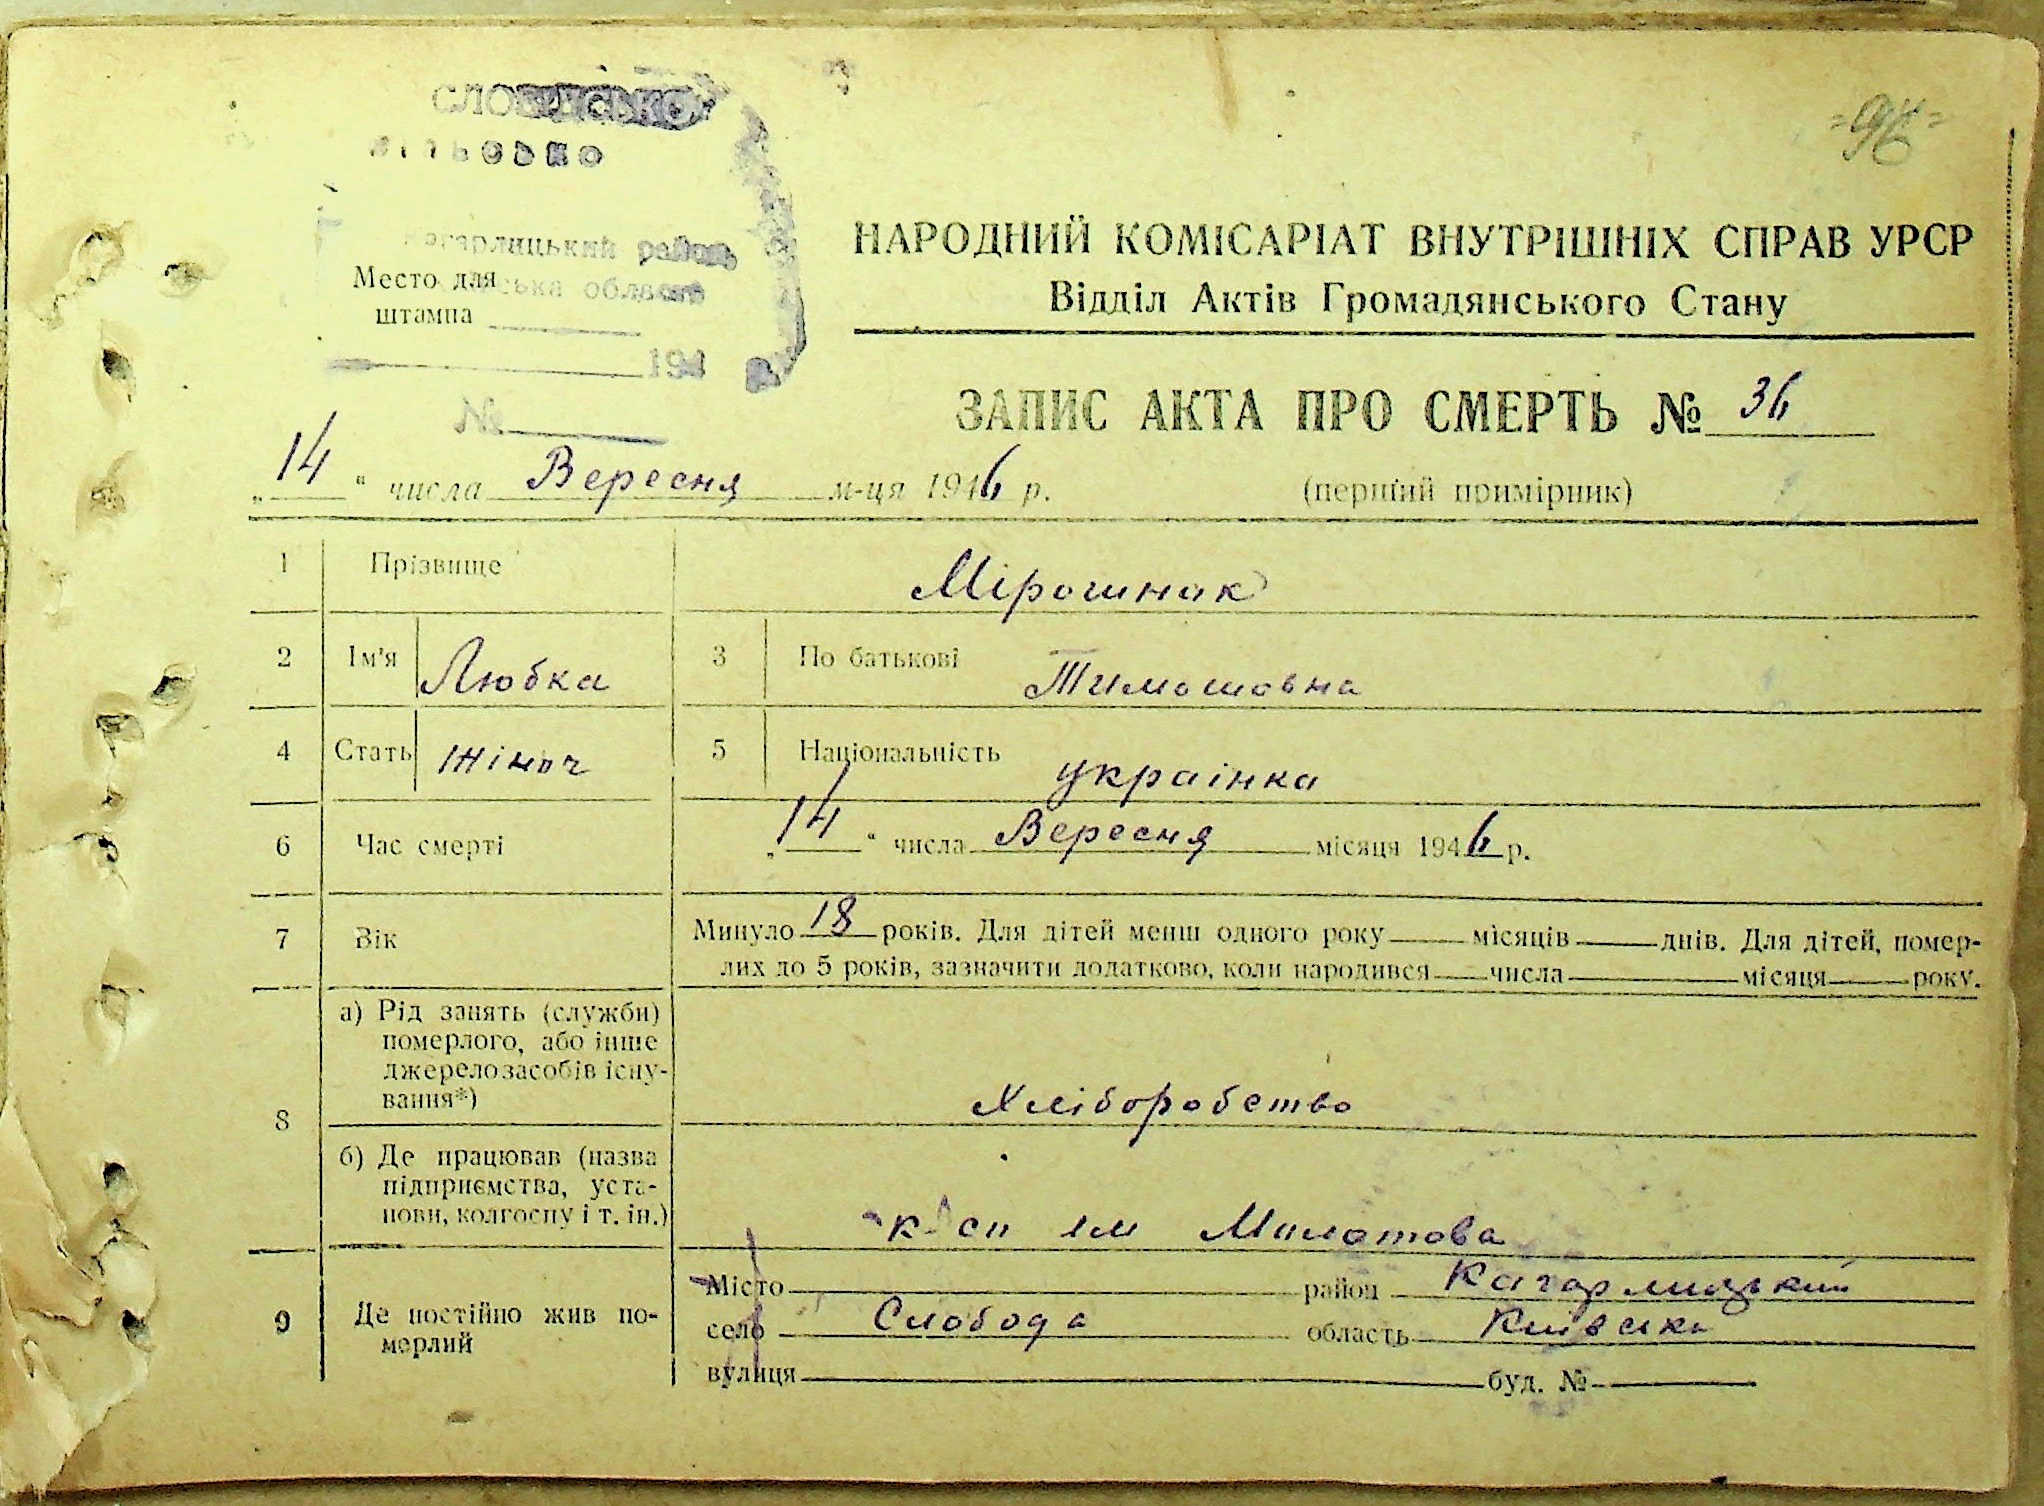 СЛОБІДСЬКО
ІЛЬСЬКО
=96=
Кагарлицький район
ська область
Место для
штампа
194
№
НАРОДНИЙ КОМІСАРІАТ ВНУТРІШНІХ СПРАВ УРСР
Відділ Актів Громадянського Стану
ЗАПИС АКТА ПРО СМЕРТЬ № 36
„14“ числа Вересня м-ця 1946 р. (перший примірник)
1 Прізвище Мірошнак
2 Ім'я Любка 3 По батькові Тимошовна
4 Стать жіноч 5 Національність українка
6 Час смерті „14“ числа Вересня місяця 1946 р.
7 Вік Минуло 18 років. Для дітей менш одного року місяців днів. Для дітей, помер-
лих до 5 років, зазначити додатково, коли народився числа місяця року.
8 а) Рід занять (служби)
померлого, або інше
джерело засобів існу-
вання*) Хліборобство
б) Де працював (назва
підприємства, уста-
нови, колгоспу і т. ін.) к-сп ім Молотова
9 Де постійно жив по-
мерлий
Місто район Кагарлицький
село Слобода область Київська
вулиця буд. №